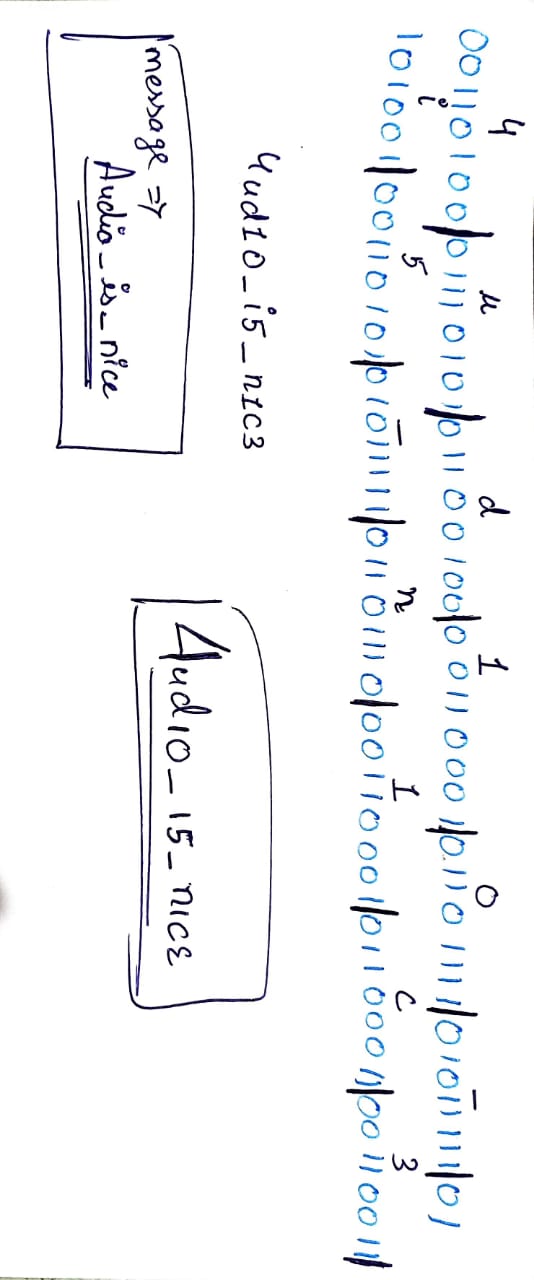 4 u d 1 o _
00110100|01110101|01100100|00110001|01101111|01011111|01
i 5 _ n 1 c 3
101001|00110101|01011111|01101110|00110001|01100011|00110011|
4ud1o_i5_n1c3
message ⇒
Audio_is_nice
4ud1o_15_n1c3